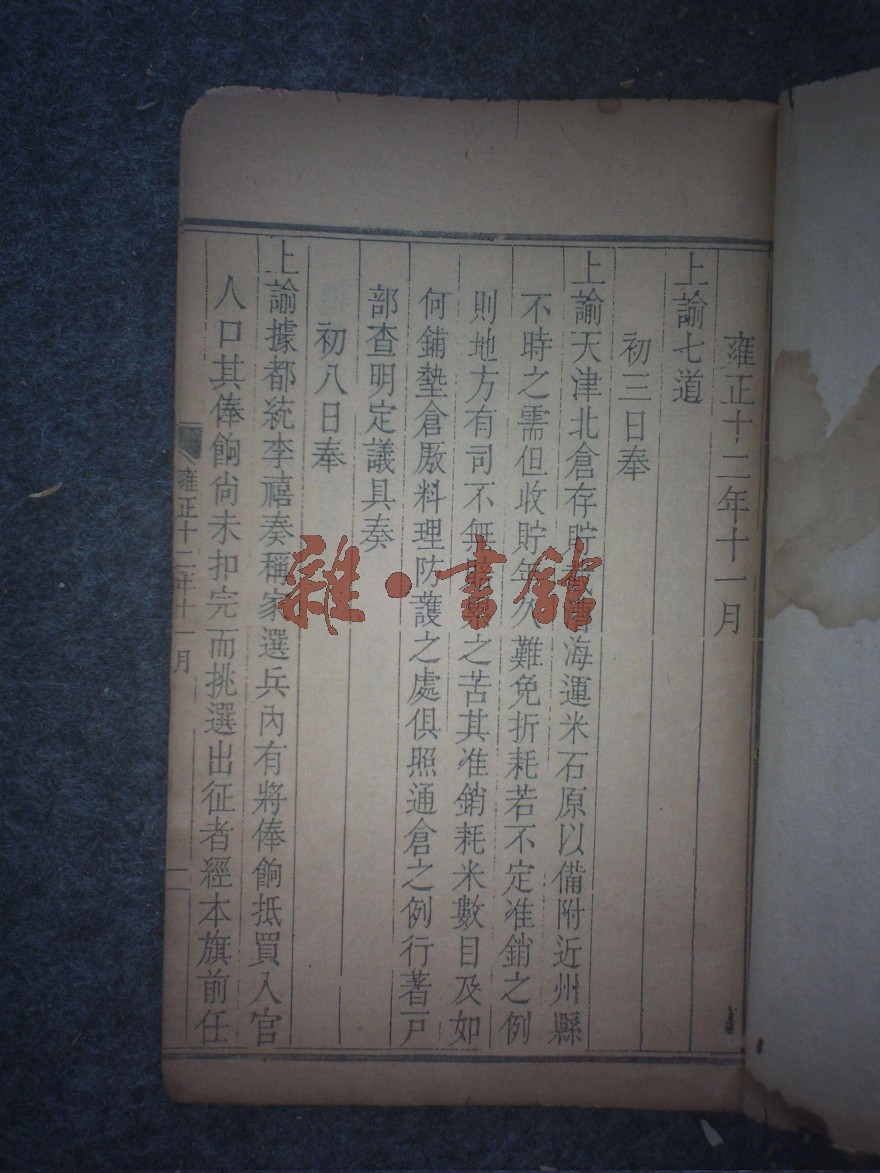 雍正十二年十一月
上諭七道
初三日奉
上諭天津北倉存貯截留海運米石原以備附近州縣
不時之需但收貯年久難免折耗若不定准銷之例
則地方有司不無賠之苦其准銷耗米數目及如
何鋪墊倉厫料理防護之處俱照通倉之例行著戸
部查明定議具奏
初八日奉
上諭據都統李禧奏稱家選兵內有將俸餉抵買入官
人口其俸餉尚未扣完而挑選出征者經本旗前任
雍正十二年十一月 一
雜·書館